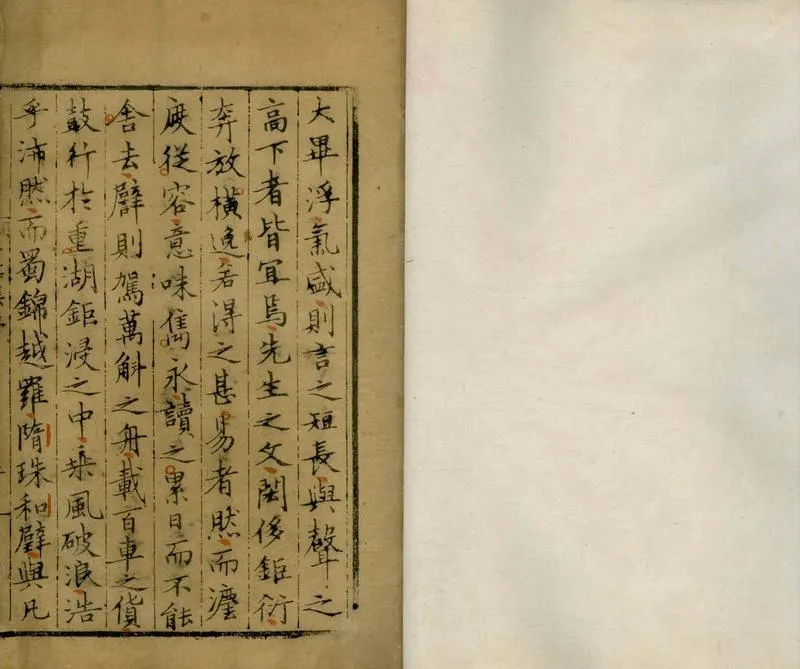 大畢浮氣盛則言之短長與聲之
高下者皆宜焉先生之文閎侈鉅衍
奔放橫逸若得之甚易者然而瀍
庾從容意味雋永讀之累日而不能
舍去辟則駕萬斛之舟載百車之貨
鼓行於重湖鉅浸之中乘風破浪浩
乎沛然而蜀錦越羅隋珠和璧與凡